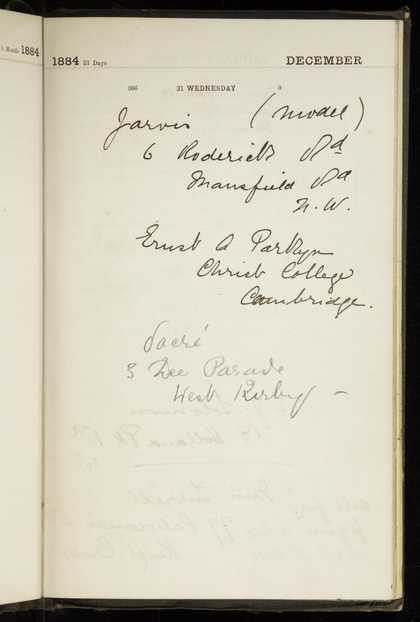 h Month 1884
1884 31 Days DECEMBER
366 31 WEDNESDAY 0
Jarvis (Model)
6 Roderick Rd
Mansfield Rd
N.W.
Ernest A Parkyn
Christ College
Cambridge.
Sacré
3 Dee Parade
West Kirby –